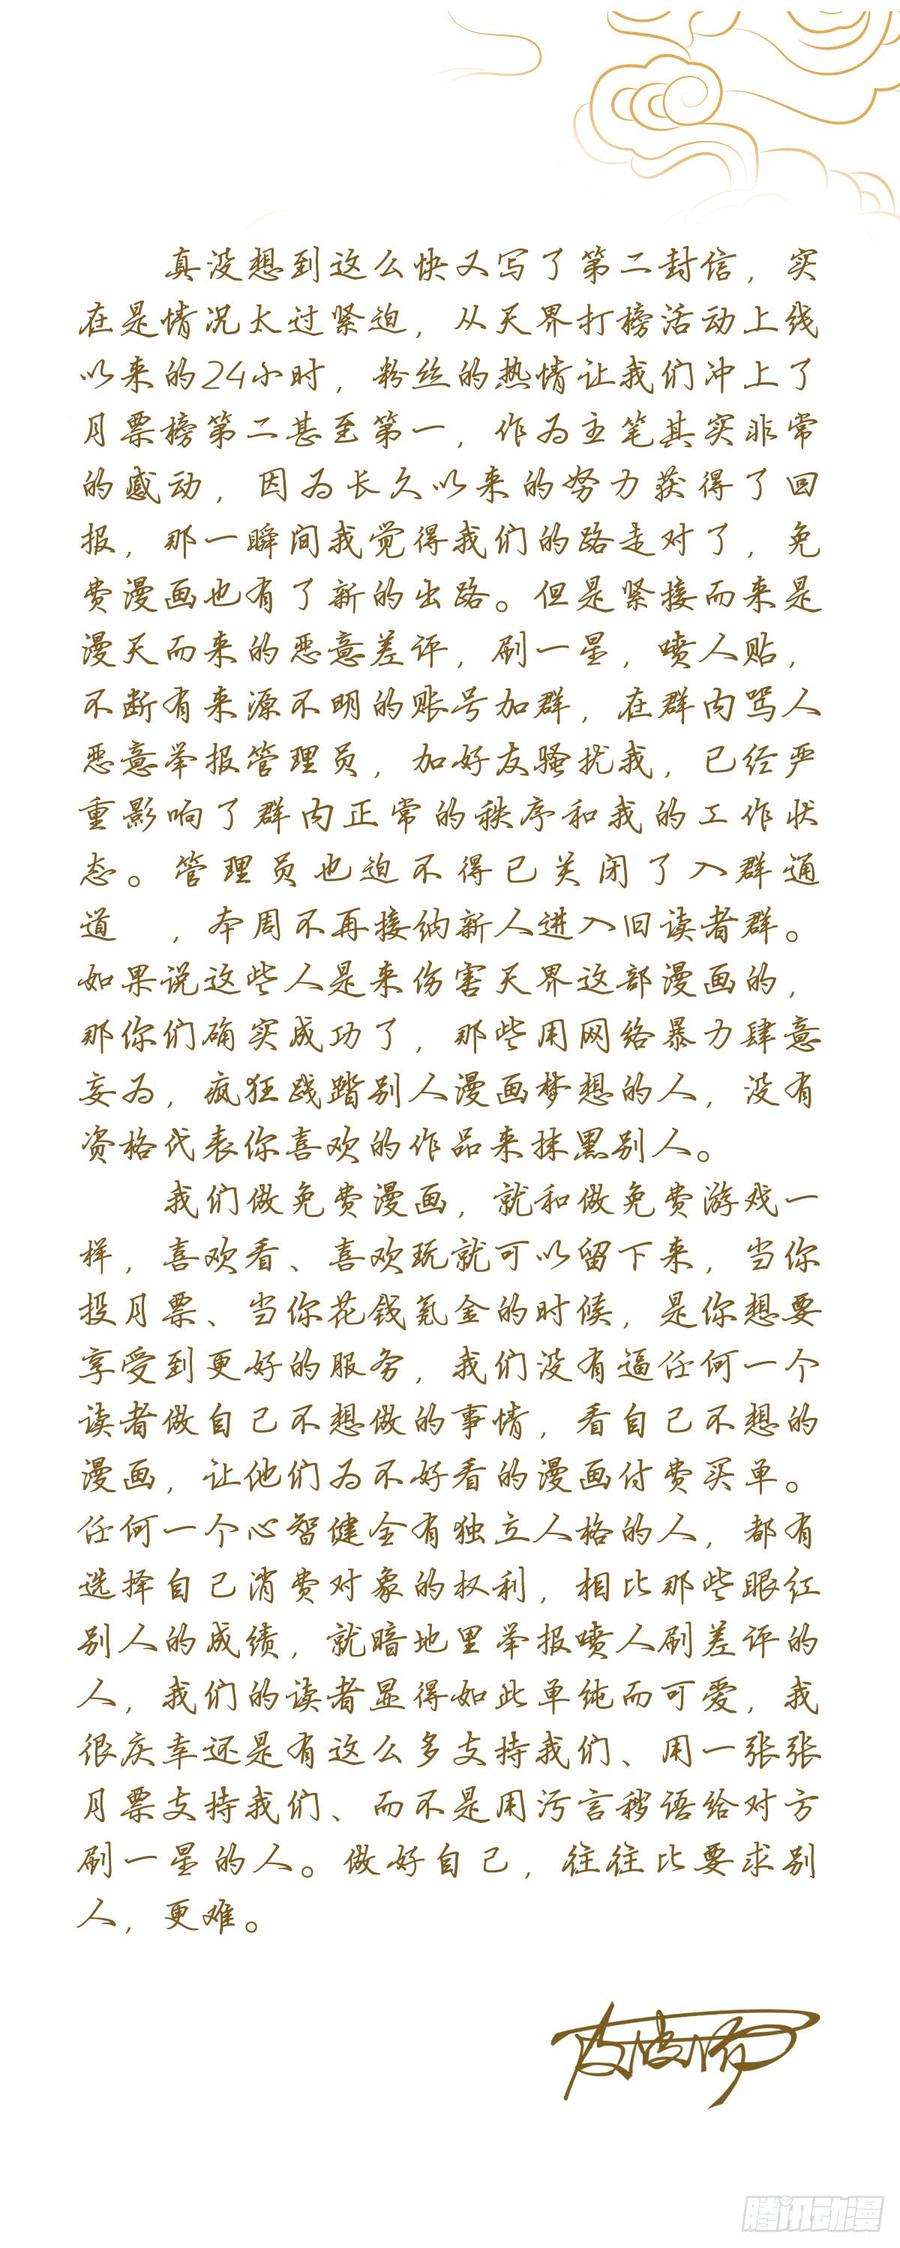 真没想到这么快又写了第二封信，实
在是情况太过紧迫，从天界打榜活动上线
以来的24小时，粉丝的热情让我们冲上了
月票榜第二甚至第一，作为主笔其实非常
的感动，因为长久以来的努力获得了回
报，那一瞬间我觉得我们的路走对了，免
费漫画也有了新的出路。但是紧接而来是
漫天而来的恶意差评，刷一星，喷人贴，
不断有来源不明的账号加群，在群内骂人
恶意举报管理员，加好友骚扰我，已经严
重影响了群内正常的秩序和我的工作状
态。管理员也迫不得已关闭了入群通
道 ，本周不再接纳新人进入旧读者群。
如果说这些人是来伤害天界这部漫画的，
那你们确实成功了，那些用网络暴力肆意
妄为，疯狂践踏别人漫画梦想的人，没有
资格代表你喜欢的作品来抹黑别人。
我们做免费漫画，就和做免费游戏一
样，喜欢看、喜欢玩就可以留下来，当你
投月票、当你花钱氪金的时候，是你想要
享受到更好的服务，我们没有逼任何一个
读者做自己不想做的事情，看自己不想的
漫画，让他们为不好看的漫画付费买单。
任何一个心智健全有独立人格的人，都有
选择自己消费对象的权利，相比那些眼红
别人的成绩，就暗地里举报喷人刷差评的
人，我们的读者显得如此单纯而可爱，我
很庆幸还是有这么多支持我们、用一张张
月票支持我们、而不是用污言秽语给对方
刷一星的人。做好自己，往往比要求别
人，更难。
腾讯动漫